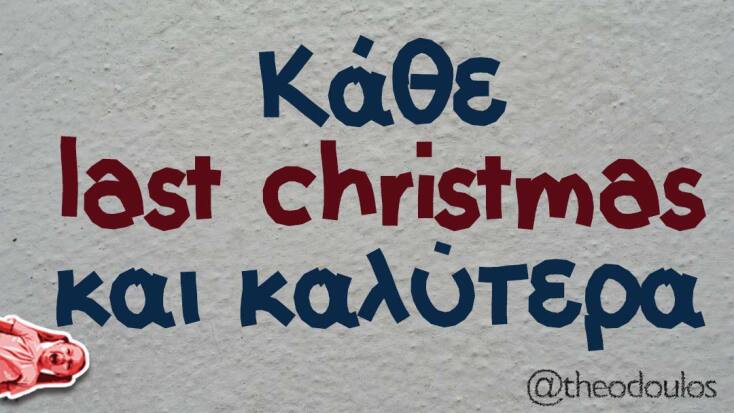 Κάθε
last christmas
και καλύτερα
@theodoulos